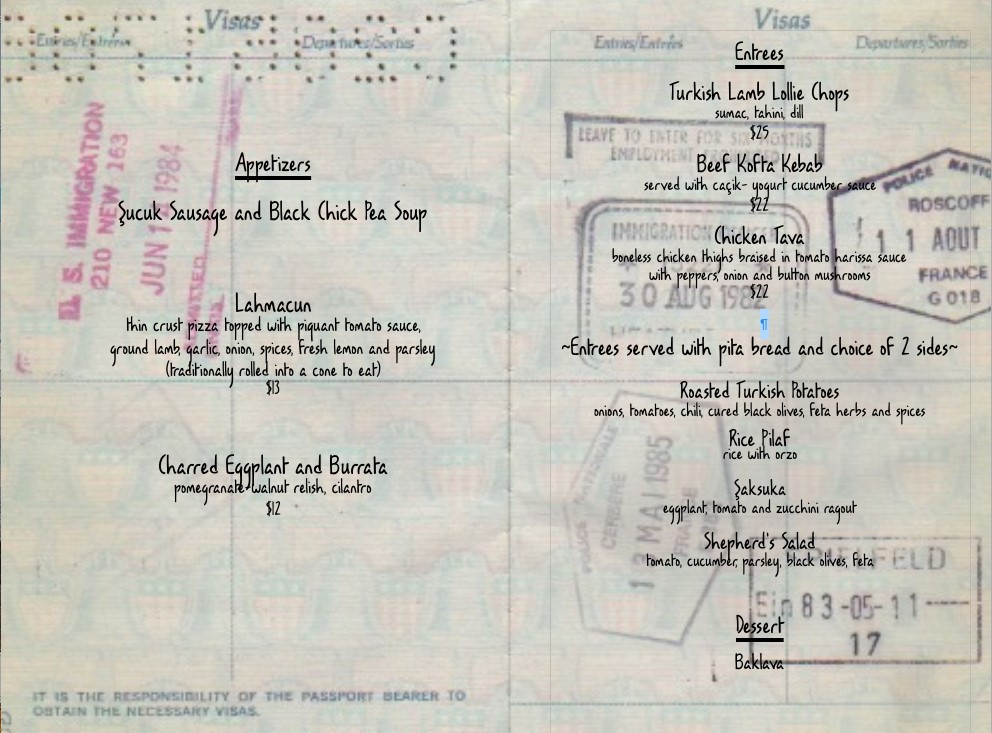 Visas
Entries/Entrées
Departures/Sorties
U. S. IMMIGRATION
210 NEW 163
JUN 1984
ADMITTED
Appetizers
Şucuk Sausage and Black Chick Pea Soup
Lahmacun
thin crust pizza topped with piquant tomato sauce,
ground lamb, garlic, onion, spices, fresh lemon and parsley
(traditionally rolled into a cone to eat)
$13
Charred Eggplant and Burrata
pomegranate-walnut relish, cilantro
$12
IT IS THE RESPONSIBILITY OF THE PASSPORT BEARER TO
OBTAIN THE NECESSARY VISAS.
Visas
Entries/Entrées
Departures/Sorties
Entrees
Turkish Lamb Lollie Chops
sumac, tahini, dill
$25
LEAVE TO ENTER FOR SIX MONTHS
EMPLOYMENT
Beef Kofta Kebab
served with caçik- yogurt cucumber sauce
$22
Chicken Tava
boneless chicken thighs braised in tomato harissa sauce
with peppers, onion and button mushrooms
$22
¶
IMMIGRATION
30 AUG 1982
POLICE NATIO
ROSCOFF
11 AOUT
FRANCE
G 018
~Entrees served with pita bread and choice of 2 sides~
Roasted Turkish Potatoes
onions, tomatoes, chili, cured black olives, feta herbs and spices
Rice Pilaf
rice with orzo
Şaksuka
eggplant, tomato and zucchini ragout
Shepherd's Salad
tomato, cucumber, parsley, black olives, feta
POLICE NATIONALE
CERBERE
MAI 1985
Ein 83-05-11
17
Dessert
Baklava